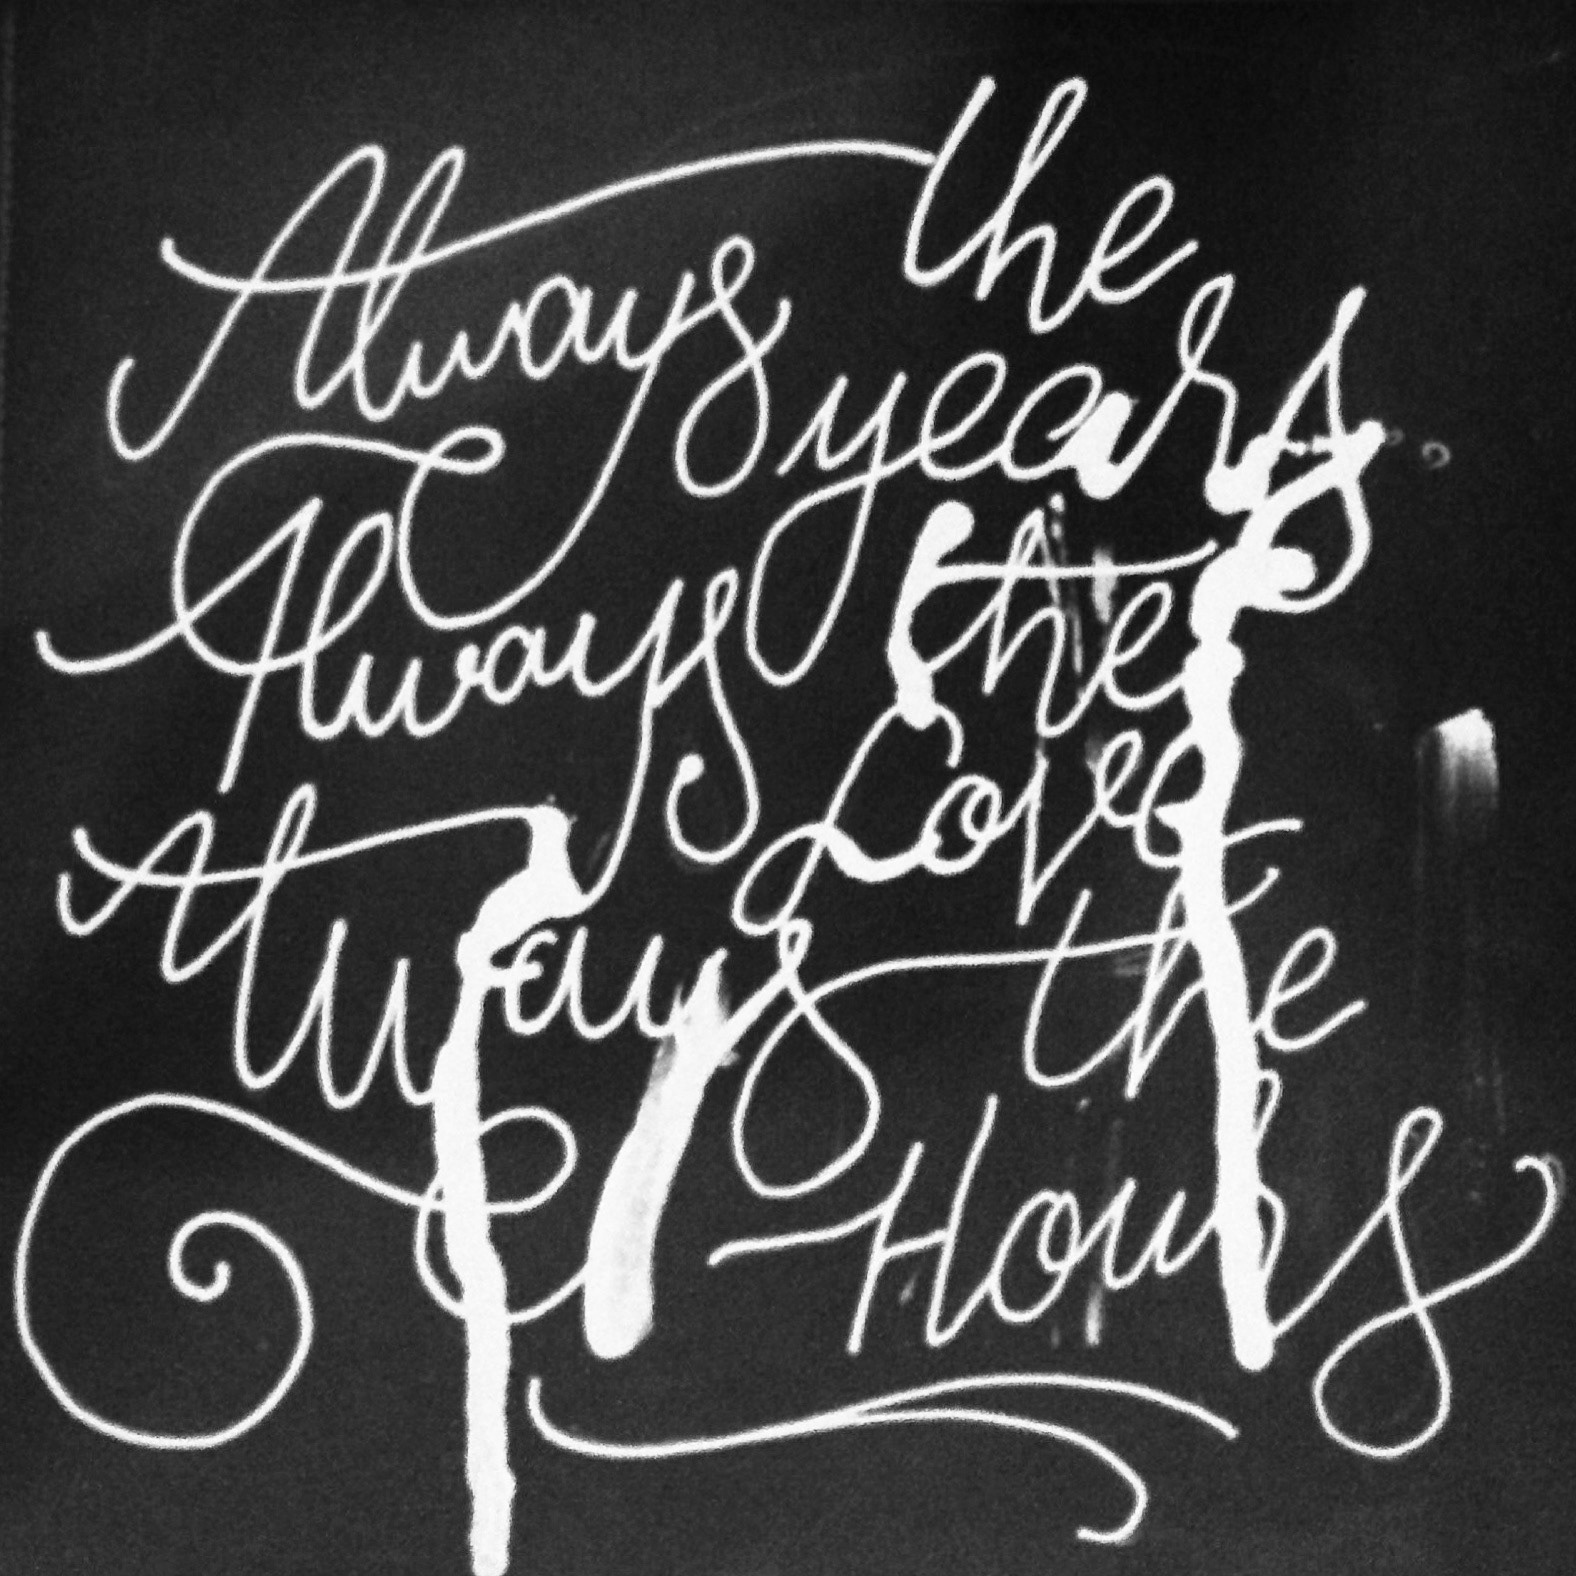 Always the
years
Always the
Love
Always the
Hours